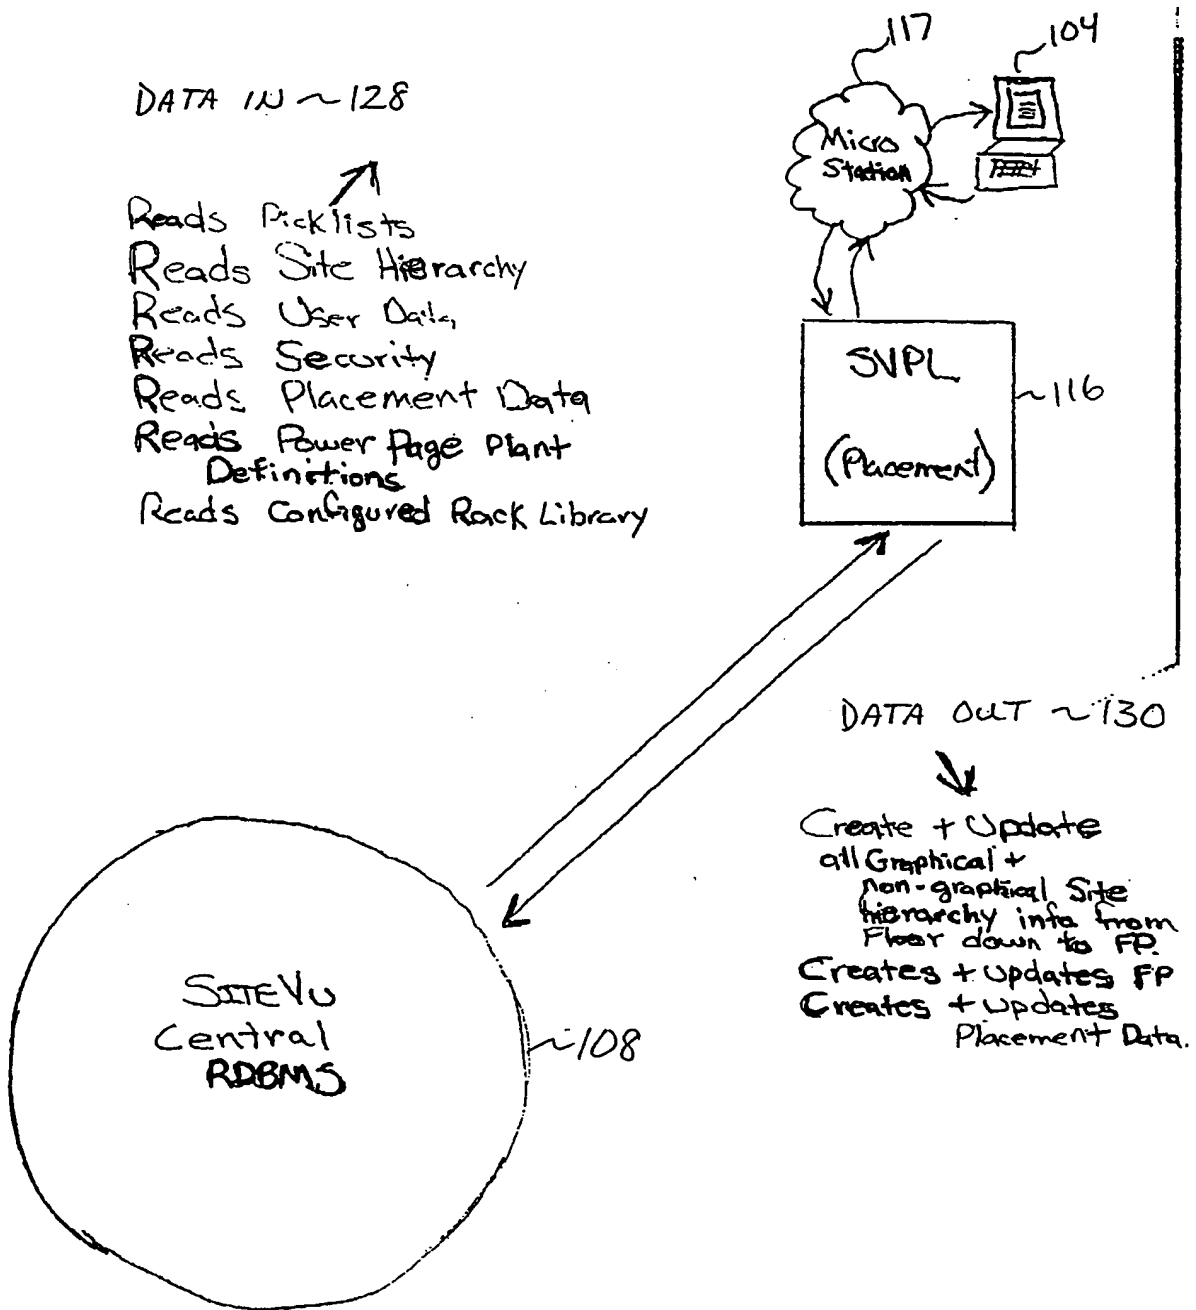 117
104
DATA IN ~128
Micro
Station
Reads Picklists
Reads Site Hierarchy
Reads User Data
Reads Security
Reads Placement Data
Reads Power Page Plant
Definitions
Reads Configured Rack Library
SVPL
(Placement)
~116
DATA OUT ~130
Create + Update
all Graphical +
non-graphical Site
hierarchy info from
Floor down to FP.
Creates + Updates FP
Creates + updates
Placement Data.
SITEVU
Central
RDBMS
~108